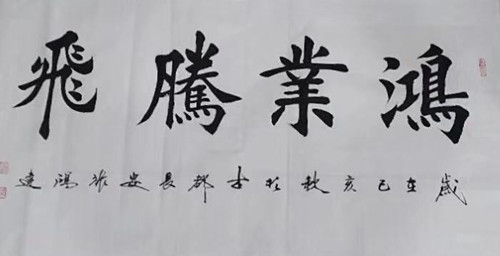 鴻業騰飛
歲在己亥秋於古都長安張鴻建